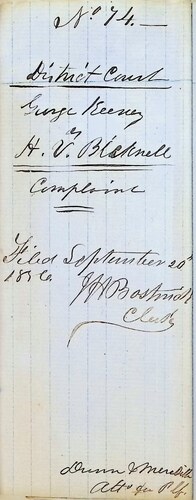 No 74.
District Court
George Keeney
v
H. V. Bicknell
Complaint
Filed September 20th
1856.
Bostwick
Clerk
Dunn & Meredith
Attys for Plff